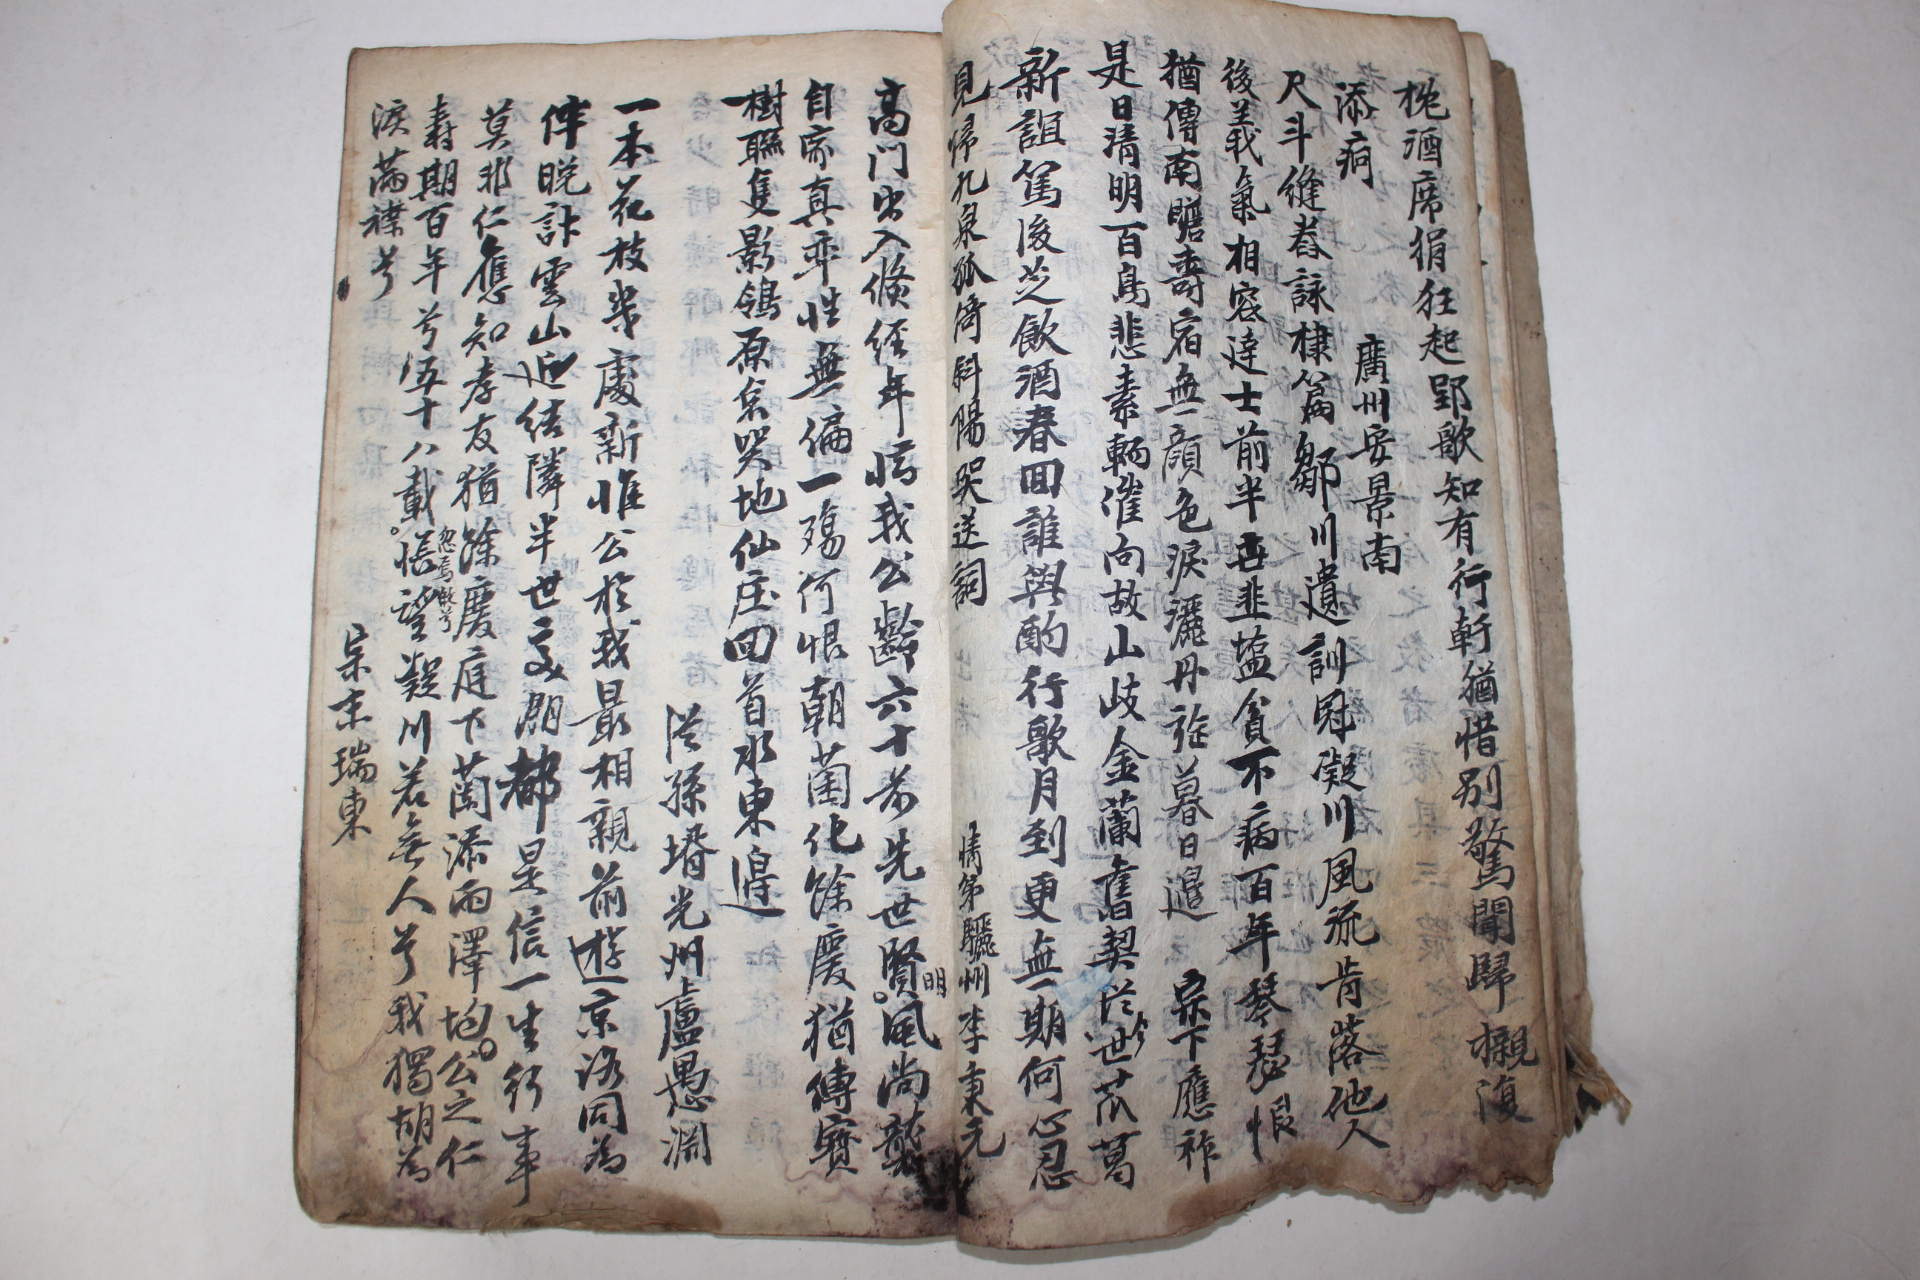 桄酒席狷狂起郢歌知有行斬猶惜別驚聞歸櫬復
添痾
廣州安景南
尺斗縫舂詠棣篇鄒川遺訓冠凝川風流肯落他人
後義氣相容達士前半世韭塩貧不病百年琴瑟恨
猶傳南瞻壽宿無顔色淚灑丹旌暮日邊 宗下應祚
是日清明百鳥悲素輀催向故山歧金蘭舊契從今世苽葛
新誼篤後芝飮酒春回誰與酌行歌月到更無期何心忍
見歸九泉孤倚斜陽哭送詞
情第驪州李秉元
高門出入倏經年憶我公齡六十前先世賢明風尚襲
自家真率性無偏一殤何恨朝菌化餘慶猶傳寶
樹聯隻影鴒原哀哭地仙庄回首水東邊
從孫壻光州盧愚淵
一本花枝幾處新惟公於我最相親前遊京洛同爲
伴晩計雲山近結隣半世交朋都是信一生行事
莫非仁應知孝友猶餘慶庭下蘭添雨澤均公之仁
壽期百年兮五十八載忽焉散兮悵望凝川若無人兮我獨胡爲
淚滿襟兮
宗末瑞東